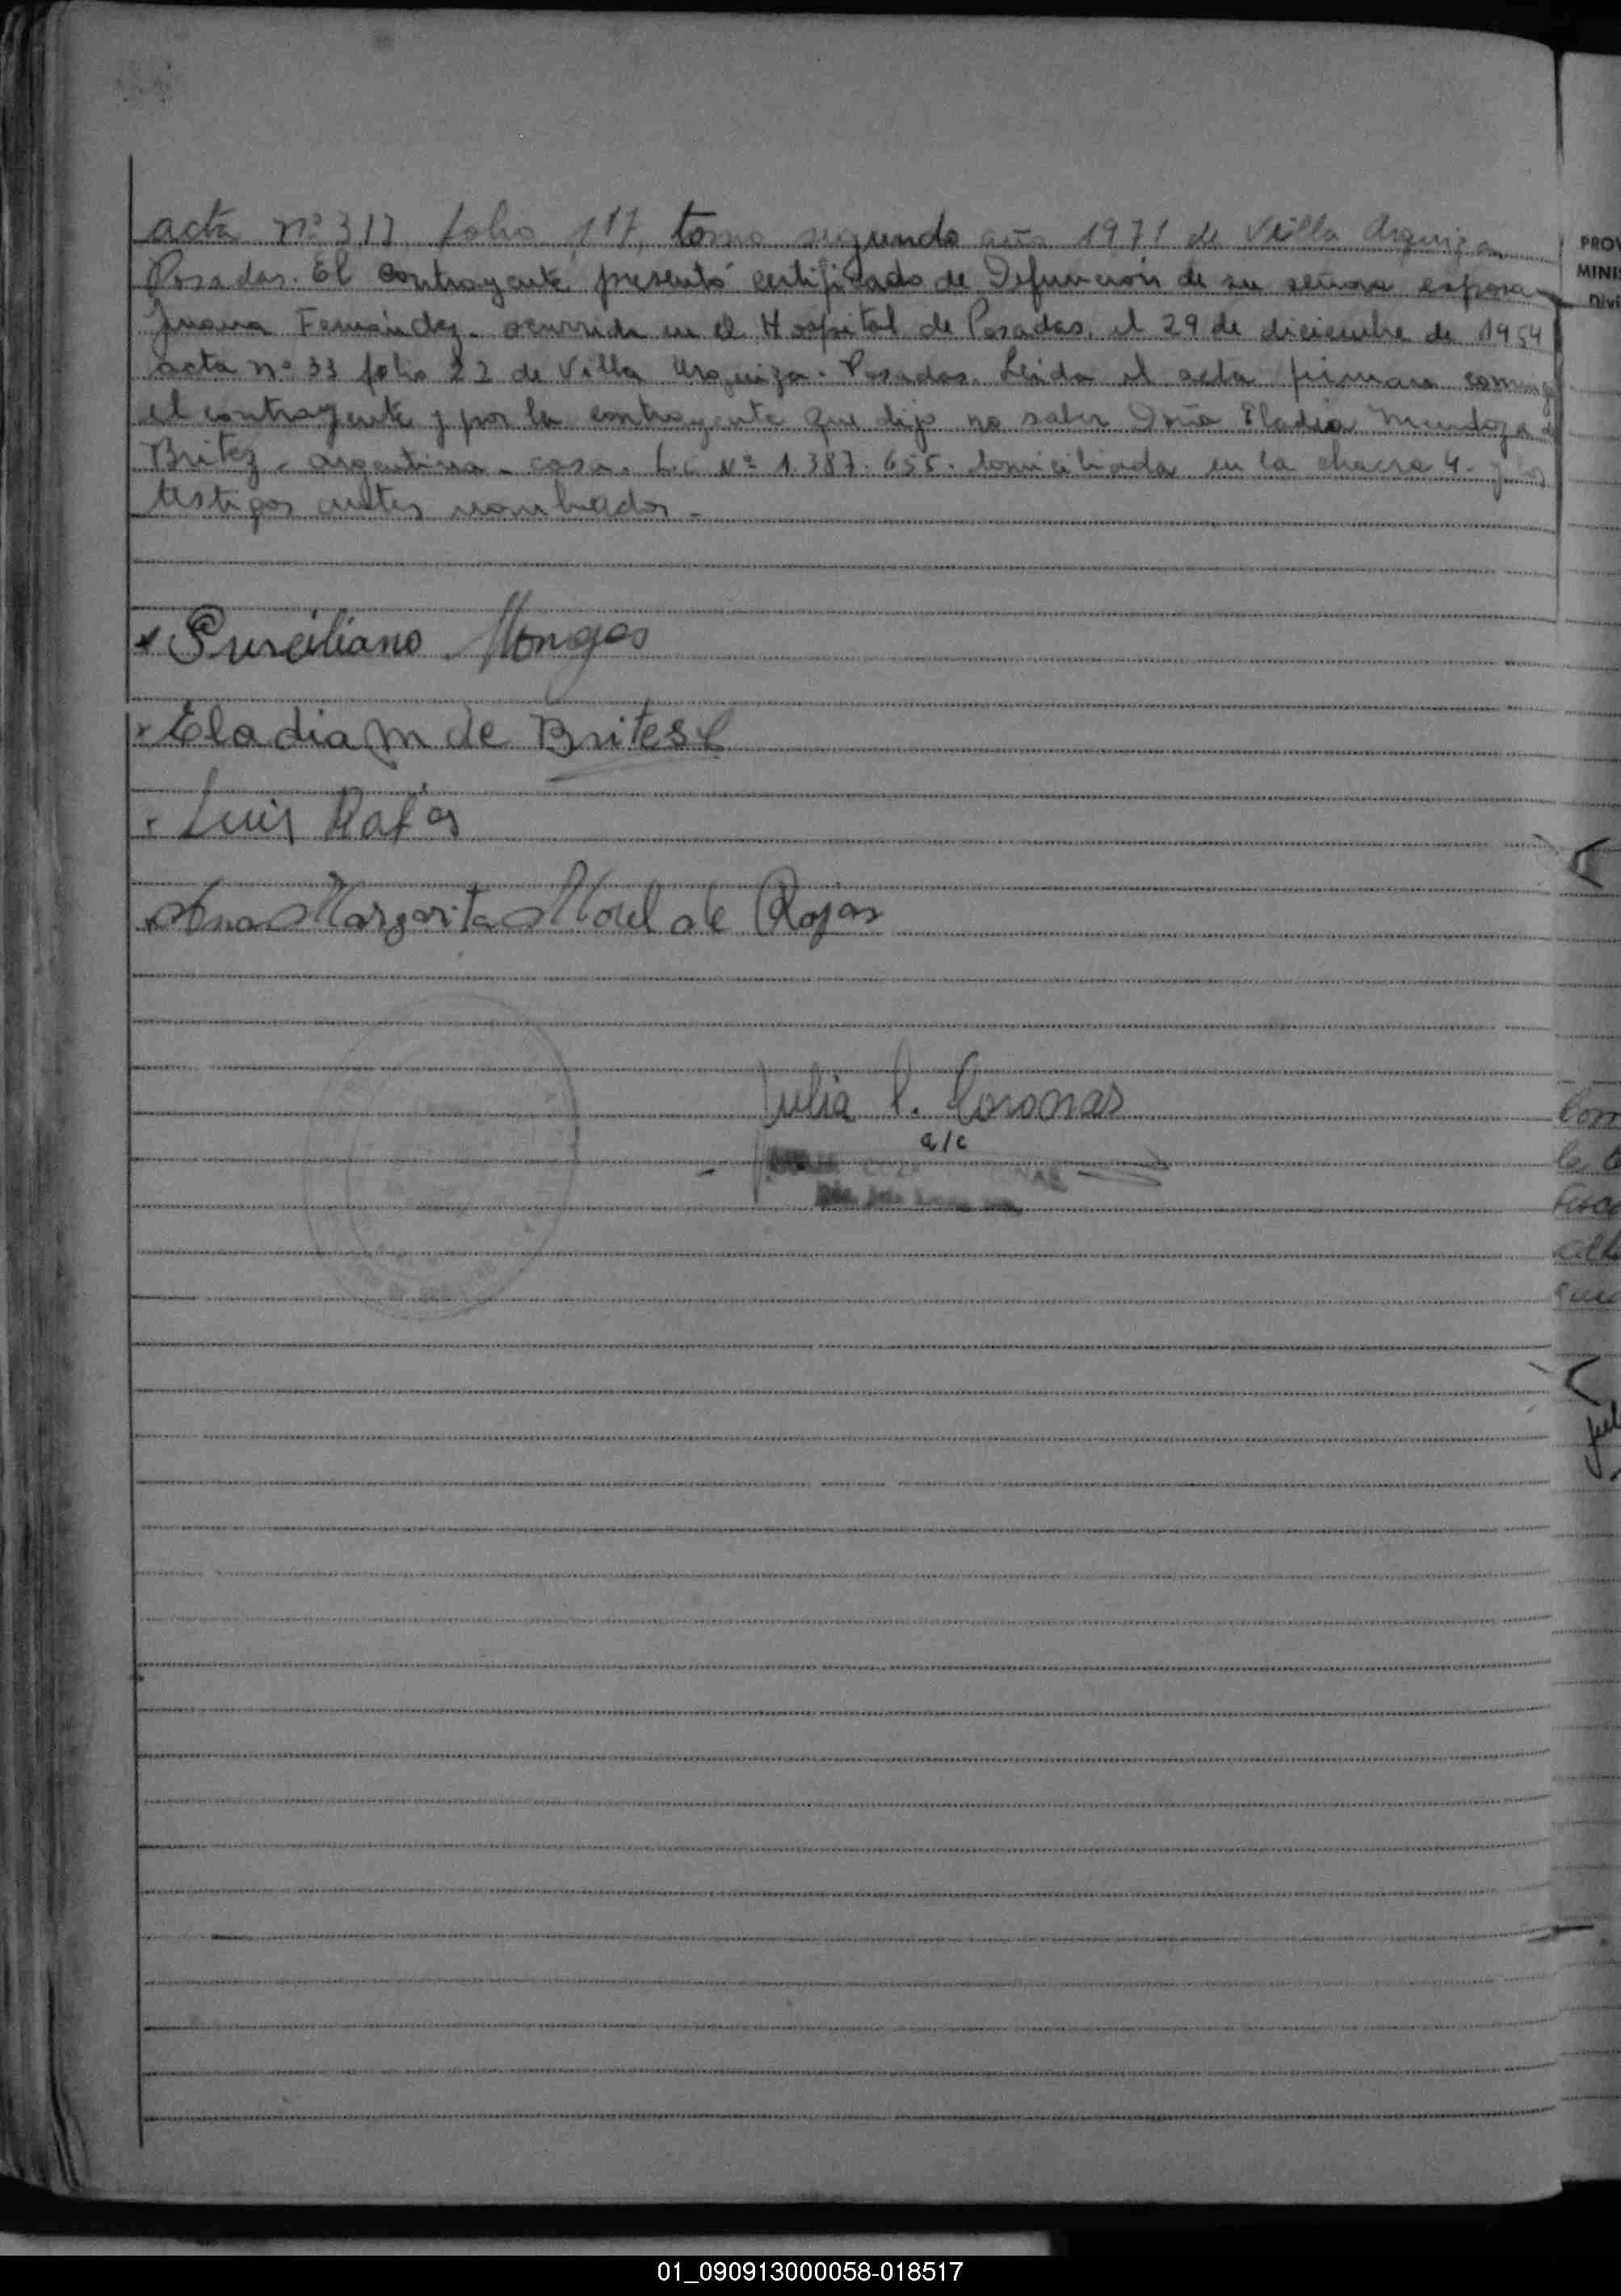 acta nº 317 folio 117, tomo segundo año 1971 de Villa Urquiza
Posadas. El contrayente presentó certificado de Defunción de su señora esposa
Juana Fernández. ocurrida en el Hospital de Posadas, el 29 de diciembre de 1954
acta nº 33 folio 22 de Villa Urquiza. Posadas. Leida el acta firman conmigo
el contrayente y por la contrayente que dijo no saber Doña Eladia Mendoza de
Britez. argentina. casa. L.C Nº 1.387.655. domiciliada en la chacra 4. y los
testigos antes nombrados.
Eladia m de Brites
Luis
Ana Margarita Morel de Rojas
Julia Coronas
a/c
PROV
MINIS
Divi
01_090913000058-018517